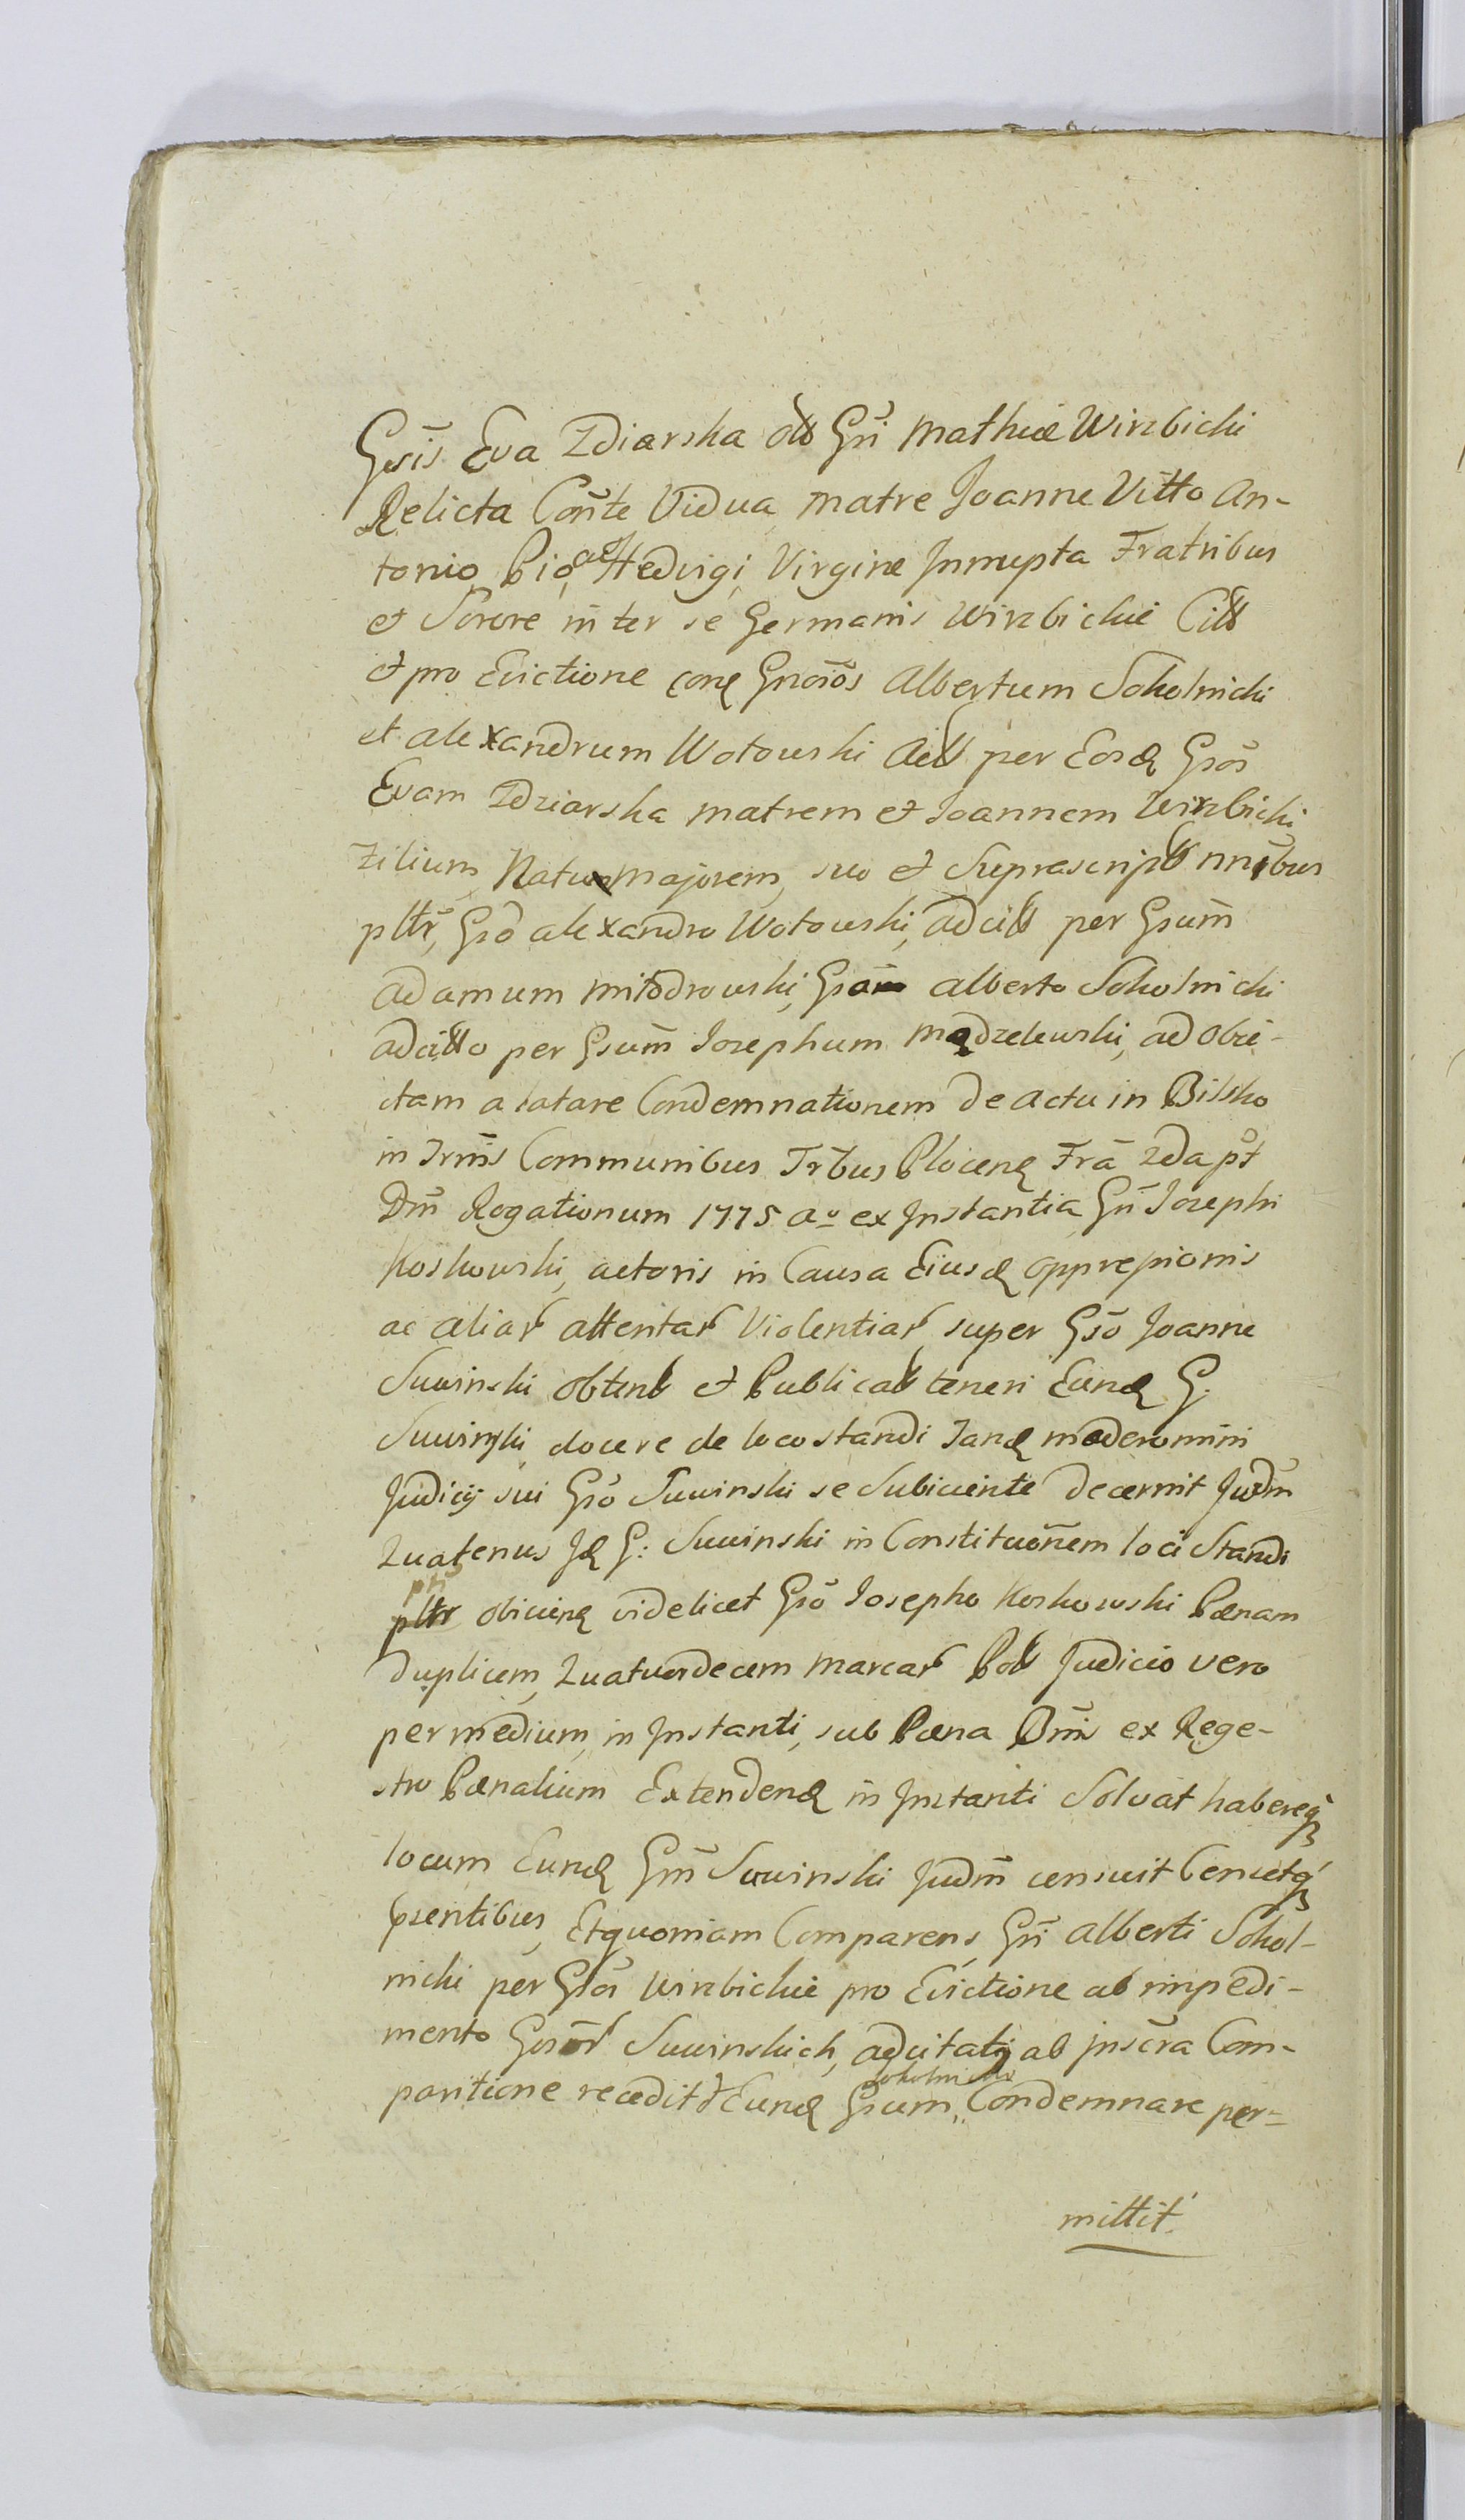 Gsis Eva Zdiarska olt Gsi Mathiæ Wirzbicki
Relicta Conte Vidua Matre Joanne Vitto An-
tonio Pio, ac Hedvigi Virgine Innupta Fratribus
et Sorore inter se Germanis Wirzbickie Citt
et pro Evictione Gnosos Albertum Sokolnicki
et Alexandrum Wotowski Acitt per Eosd Gsos
Evam Zdziarska Matrem et Joannem Wirzbicki
Filium Natu Majorem, suo et Suprascript nnibus
pltr, Gso Alexandro Wotowski, adcitt per Gsum
Adamum Mitodrowski, Alberto Sokolnicki
adcitto per Gsum Josephum Mądzelewski, ad obie-
ctam a latare Condemnationem de actu in Bilsko
in Trmis Communibus Trbus Plocen Fra 2da pst
Dm Rogationum 1775 Ao ex Instantia Gsi Josephi
Koskowski, actoris in Causa Eiusd oppressionis
ac aliar attentar Violentiar, super Gso Joanne
Suwinski obtent et Publicat teneri Eund G.
Suwinski docere de loco standi Tand moderomini
Judicij sui Gso Suwinski se Subiiciente Decernit Judm
Quatenus Id G: Suwinski in Constituonem loci Standi
pti obiicien videlicet Gso Josepho Koskowski Pænam
Duplicem, Quatuordecem Marcar Pol Judicio vero
per medium, in Instanti, sub Pæna Bnis ex Rege-
stro Pænalium Extendend in Instanti Solvat habereq
locum Eund Gsm Suwinski Judm censuit Censetq
psentibus, Etquoniam Comparens Gsi Alberti Sokol-
nicki per Gsos Wirzbickie pro Evictione ab impedi-
mento Gsor Suwinskich, adcitatj ab inscra Com-
paritione recedit & Eund Gsum Sokolnicki Condemnare per-
mittit.